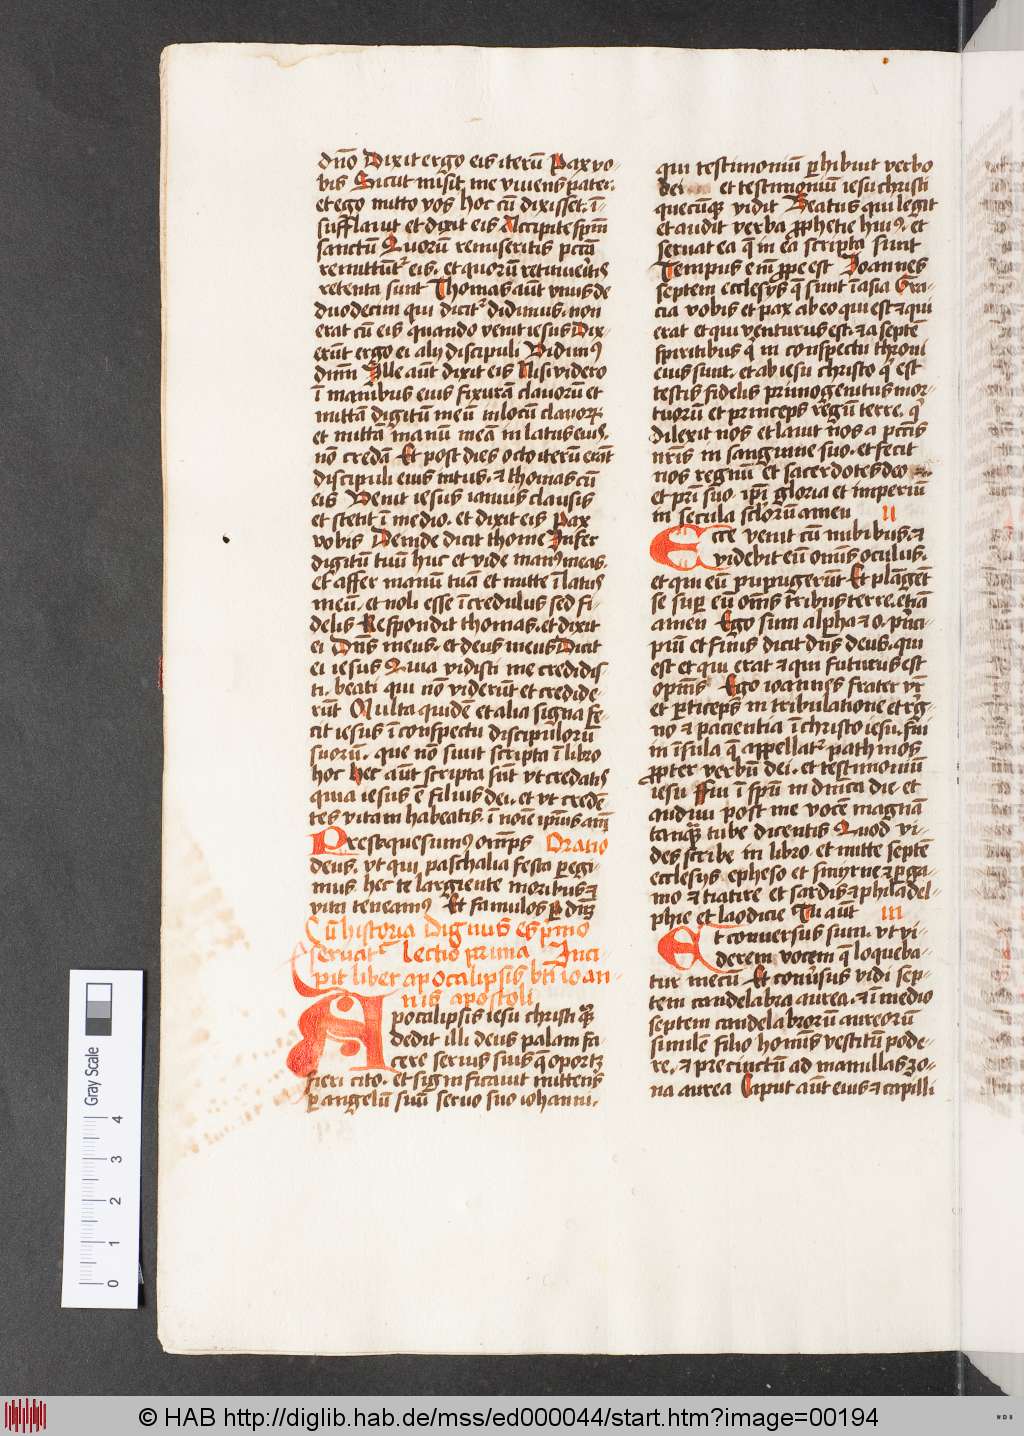 dn̄o Dixit ergo eis iterū Pax vo-
bis Sicut misit me vivens pater.
et ego mitto vos hoc cū dixisset. ī-
sufflavit et dixit eis Accipite spm̄
sanctum Quorū remiseritis pctā
remittūtr eis. et quorū retinueitis
retenta sunt Thomas aūt vnus de
duodecim qui dicitr didimus. non
erat cū eis quando venit iesus Dix-
erūt ergo ei alij discipuli Vidimꝰ
dnm̄ Ille aūt dixit eis Nisi videro
ī manibus eius fixurā clavorū et
mittā digitū meū in locū clavorꝝ
et mittā manū meā in latus eiuꝰ.
nō credā Et post dies octo iterū erāt
discipuli eius intus. et thomas cū
eis Venit iesus ianuis clausis
et stetit ī medio. et dixit eis Pax
vobis Deinde dicit thome Infer
digitū tuū huc et vide manꝰ meas.
et affer manū tuā et mitte ī latuꝰ
meū. et noli esse īcredulus sed fi-
delis Respondit thomas. et dixit
ei Dn̄s meus. et deus meus Dicit
ei iesus Quia vidisti me credidis-
ti. beati qui nō viderūt et credide-
rūt Multa quidē et alia signa fe-
cit iesus ī conspectu discipulorū
suorū. que non sunt scripta ī libro
hoc Hec aūt scripta sūt vt credatis
quia iesus ē filius dei. et vt credē-
tes vitam habeatis. ī noīe ipsius am̄
Presta quesumus omps Oratio
deus. vt qui paschalia festa peregi-
mus hec te largiente moribus et
vita teneamꝰ Et famulos p dn̄ꝫ
Cū historia Dignus es pmo
servatr Lectio prima Inci-
pit liber apocalipsis bti ioan-
nis apostoli
Apocalipsis iesu christi quā
dedit illi deus palam fa-
cere servis suis q̄ oportꝫ
fieri cito. et significavit mittens
ꝑ angelū suū servo suo iohanni.
qui testimoniū ꝑhibuit verbo
dei et testimoniū iesu christi
quecūqꝫ vidit Beatus qui legit
et audit verba ꝓphetie huiꝰ. et
servat ea q̄ in ea scripta sunt
Tempus em̄ ꝓpe est Joannes
septem ecclesijs q̄ sunt ī asia Gra-
cia vobis et pax ab eo qui est et qui
erat et qui venturus est. et a septē
spiritibus q̄ in conspectu throni
eius sunt. et ab iesu christo q̄ est
testis fidelis primogenitus mor-
tuorū et princeps regū terre. q̄
dilexit nos et lavit nos a pctīs
nrīs in sanguine suo. et fecit
nos regnū et sacerdotes deo
et prī suo ipī gloria et imperiū
in secula sclorū amen II
Ecce venit cū nubibus. et
videbit eū omīs oculus.
et qui eū pupugerūt Et plāgēt
se super eū om̄s tribus terre. etiā
amen Ego sum alpha et o. prīci-
piū et finis dicit dn̄s deus. qui
est et qui erat et qui futurus est
opm̄s Ego ioannes frater vr̄
et ꝑticeps in tribulatione et reg-
no et paciencia ī christo iesu. fui
in īsula q̄ appellatr pathmos
ꝓpter verbū dei. et testimoniū
iesu Fui ī spū in dnīca die. et
audivi post me vocē magnā
tanquā tube dicentis Quod vi-
des scribe in libro. et mitte septē
ecclesijs epheso et smyrne et ꝑga-
mo et tiatire et sardis et philadel-
phie et laodicie Tu aūt III
Et conversus sum. vt vi-
derem vocem q̄ loqueba-
tur mecū Et convsus vidi sep-
tem candelabra aurea. et ī medio
septem candelabrorū aureorū
similē filio homīs vestitū pode-
re. et precinctū ad mamillas zo-
na aurea Caput aūt eius et capilli
Gray Scale
4
3
2
1
0
© HAB http://diglib.hab.de/mss/ed000044/start.htm?image=00194